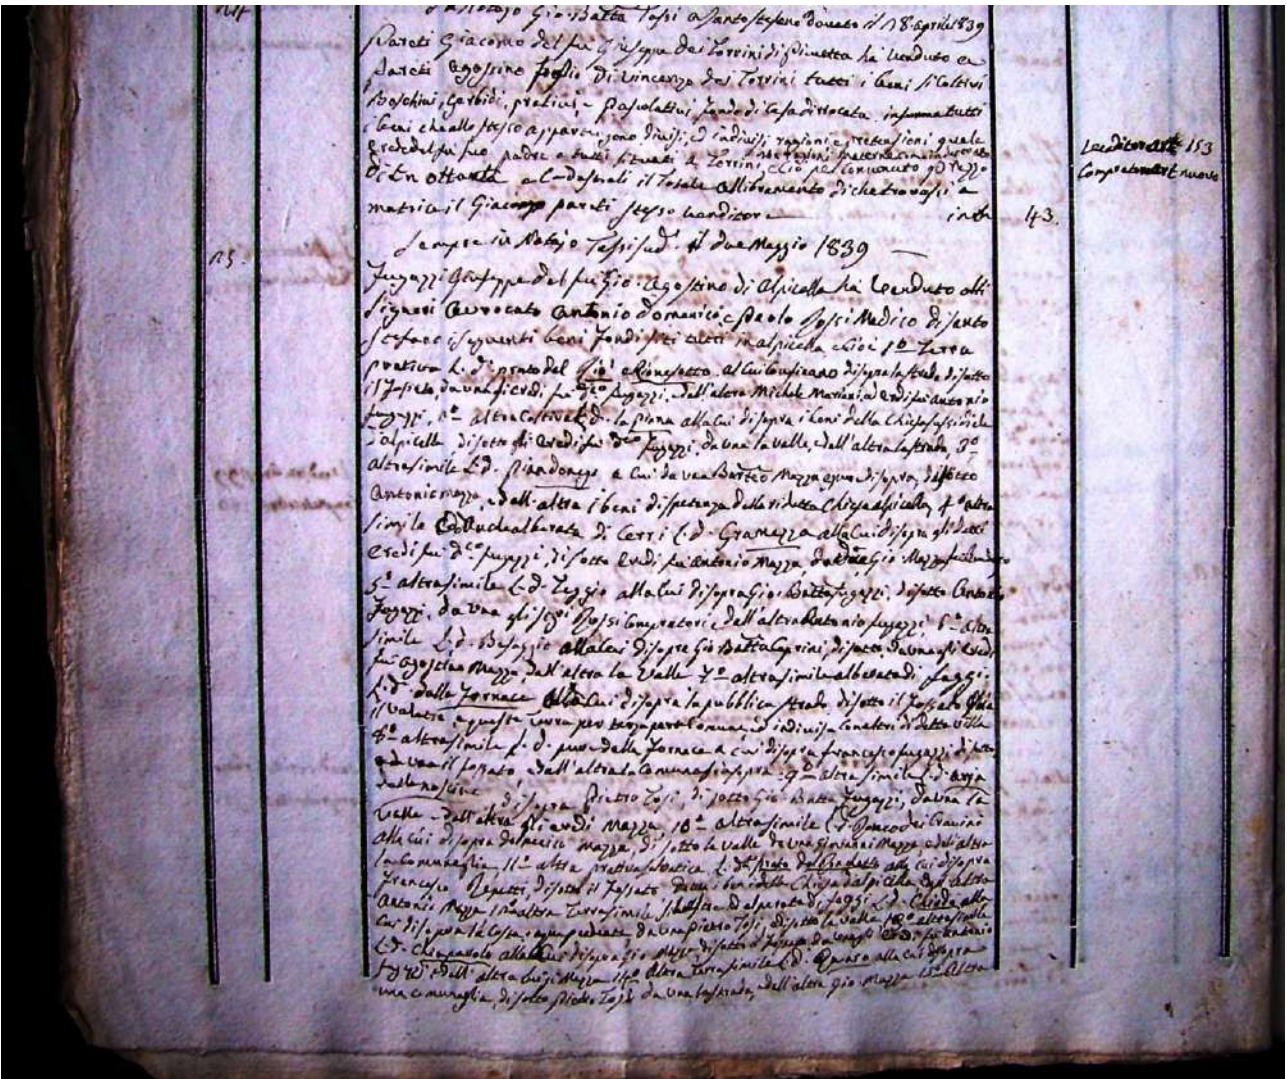 Notajo Gio. Batta Tassi a Santo Stefano Donato il 18 aprile 1839
Pareti Giacomo del fu Giuseppe dei Torrini di Pinetta ha venduto a
Pareti Agostino figlio di Vincenzo dei Torrini tutti i beni si coltivi
Boschivi, Gerbidi, prativi e Pascolativi fondo di Casa dirrocata insomma tutti
i beni che allo stesso appartengono divisi, ed indivisi ragioni e pretensioni quale
erede del fu suo padre e tutti situati a Torrini, e ciò pel convenuto prezzo
di Ln ottanta il totale allibramento di che trovasi a
matrice il Giacomo pareti stesso venditore in 43.
Venditore art. 153
Compratore art. nuovo
25.
Sempre in Notajo Tassi sud. il due Maggio 1839
Fugazzi Giuseppe del fu Gio. Agostino di Alpicella ha venduto alli
Signori Avvocato Antonio Domenico, e Paolo Rossi Medico di Santo
Stefano i seguenti beni fondi siti tutti in alpicella cioè 1º Terra
prativa l. d. prato del Rione sotto al cui confinano di sopra la strada di sotto
il fossato, da una gli eredi fu Dco Fugazzi, dall'altra Michele Mariani, ed eredi fu Antonio
Fugazzi, 2º altra Coltiva l. d. la piana alla cui di sopra i beni della Chiesa
d'alpicella di sotto gli Eredi fu Dco Fugazzi, da una la valle, dall'altra la strada, 3º
altra simile l. d. a cui da una Barteo Mazza di sopra, di sotto
Antonio Mazza, e dall'altra i beni di spetanza della ridetta Chiesa alpicella, 4º altra
simile alberata di Cerri l. d. Gramezza alla cui di sopra gli detti
Eredi fu Dco Fugazzi, di sotto Eredi fu Antonio Mazza, da una Gio. Mazza
5º altra simile l. d. Teggio alla cui di sopra Gio. Batta Fugazzi, di sotto Antonio
Fugazzi, da una gli sigri Rossi Compratori, e dall'altra Antonio Fugazzi, 6º altra
simile l. d. alla cui di sopra Gio Batta Caprini, di sotto, da una gli eredi
fu Agostino Mazza, dall'altra la Valle 7º altra simile alberata di faggi
l. d. della Fornace alla cui di sopra la pubblica strada di sotto il fossato
e questa Terra per terza parte Comune, ed indivisa con altri di detta villa
8º altra simile l. d. pure della Fornace a cui di sopra Francesco Fugazzi di sotto
ed una il fossato, dall'altra la Comunaglia sopra 9º altra simile l. d.
di sopra Pietro Tosi, di sotto Gio Batta Fugazzi, da una la
valle e dall'altra gli eredi Mazza, 10º altra simile l. d. Ronco dei
alla cui di sopra Domenico Mazza, di sotto la valle da una Giovanni Mazza, e dall'altra
la Comunaglia, 11º altra prativa Selvatica l. d. prato del alla cui di sopra
Francesco Repetti, di sotto il fossato i beni della Chiesa d'alpicella dall'altra
Antonio Mazza 12º altra Terra simile di faggi l. d. alla
cui di sopra la Costa da una Pietro Tosi, di sotto la valle 13º altra simile
l. d. alla cui di sopra Gio Mazza, di sotto il fossato da una gli eredi fu Antonio
e dall'altra Luigi Mazza 14º altra Terra simile l. d. alla cui di sopra
una comunaglia, di sotto Pietro Tosi da una la strada, e dall'altra Gio. Mazza 15º altra